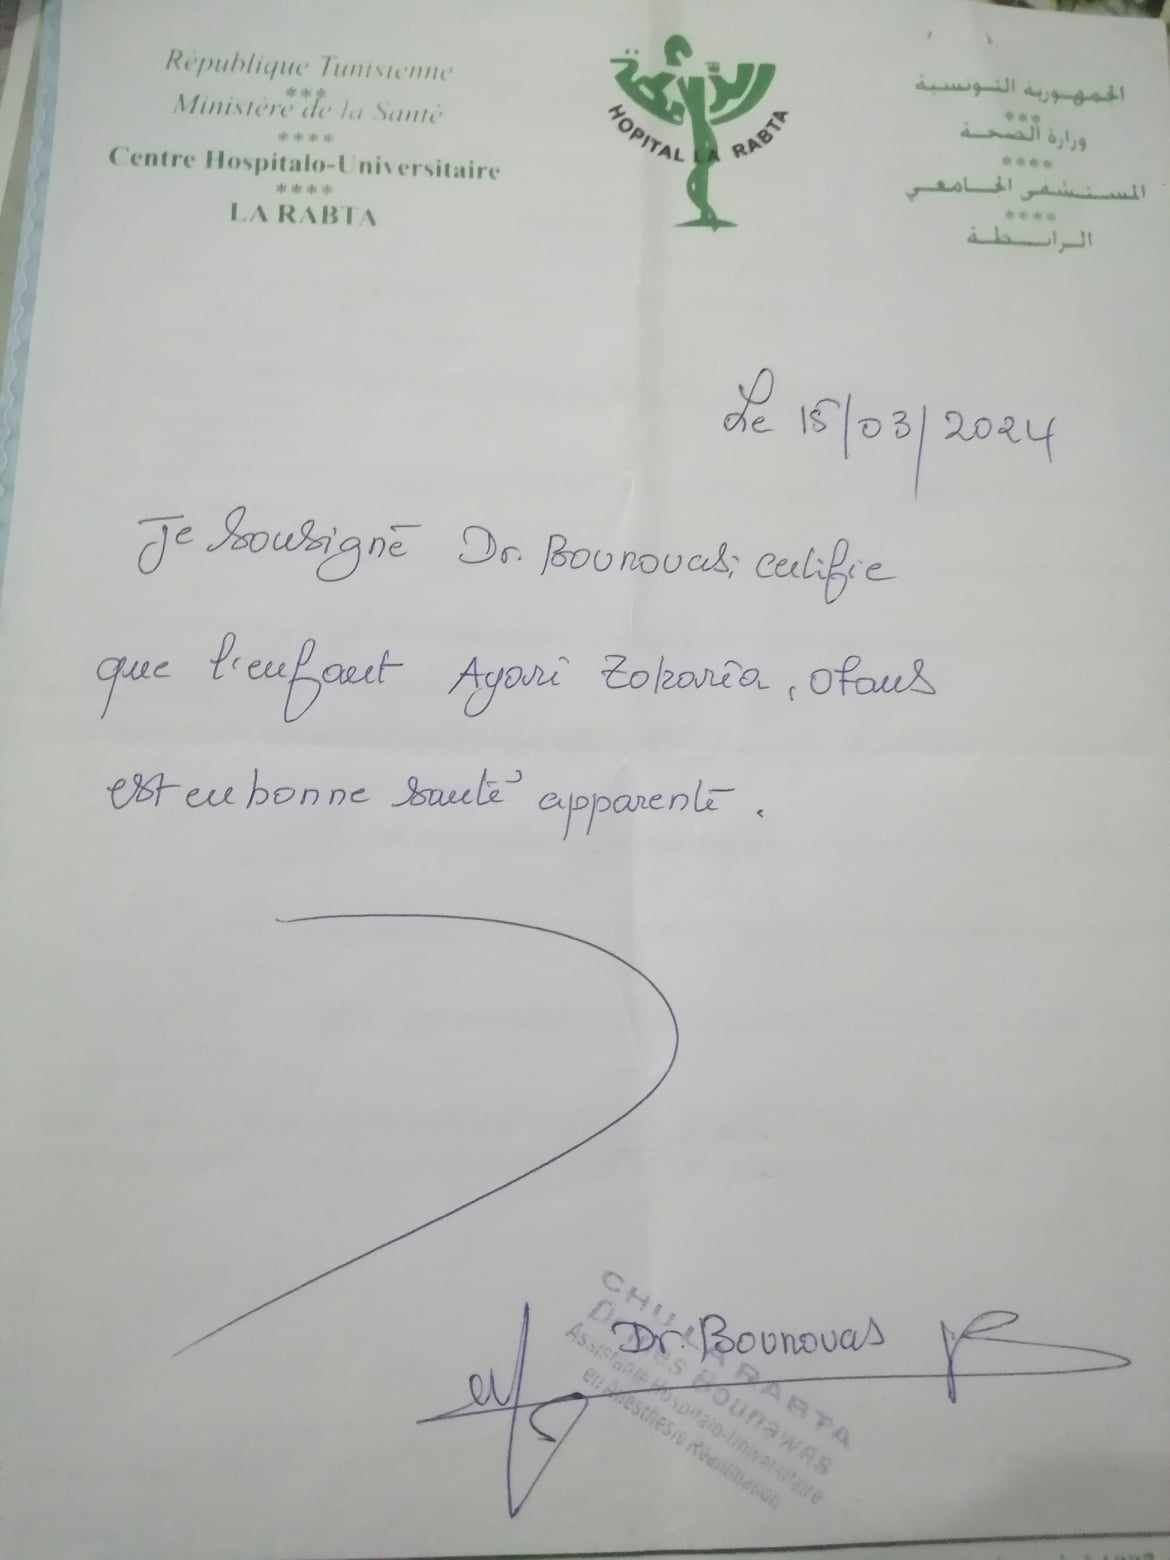 République Tunisienne
***
Ministère de la Santé
****
Centre Hospitalo-Universitaire
****
LA RABTA
الرابطة
HOPITAL LA RABTA
الجمهورية التونسية
***
وزارة الصحة
****
المستشفى الجامعي
****
الرابطة
Le 15/03/2024
Je sousigné Dr. Bounouas, certifie
que l'enfant Ayari Zakaria,
est en bonne santé apparente.
Dr. Bounouas
CHU LA RABTA
BOUNAWAS
Assistante Hospitalo-Universitaire
en Anesthésie Réanimation